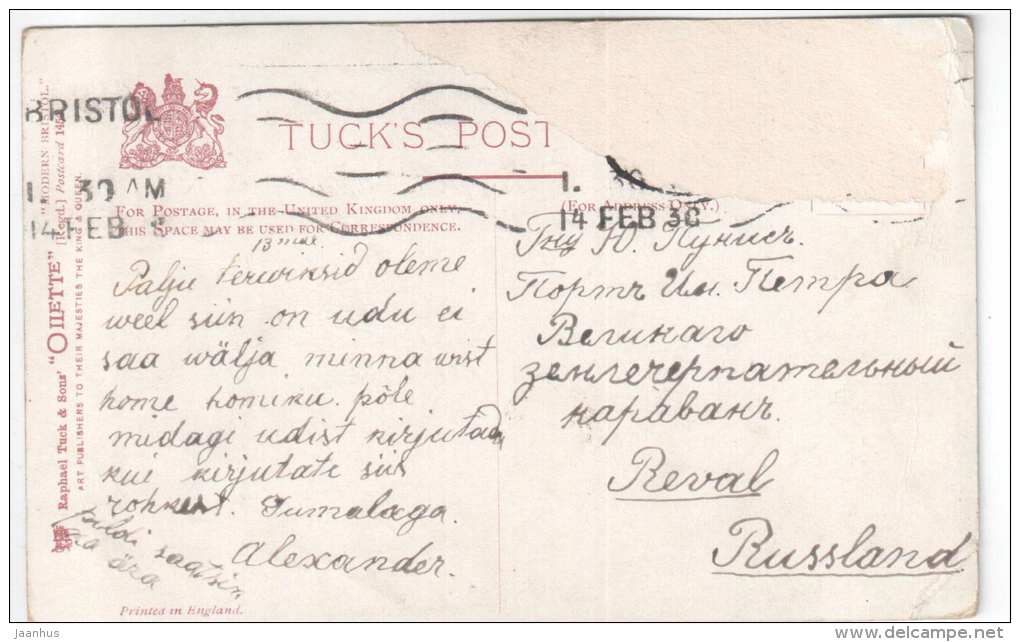 BRISTOL
1. 30 AM
14 FEB
TUCK'S POST
1. 30
14 FEB 36
FOR POSTAGE, IN THE UNITED KINGDOM ONLY,
THIS SPACE MAY BE USED FOR CORRESPONDENCE.
(FOR ADDRESS ONLY.)
13 mal
Palju terwiksid oleme
weel siin on udu ei
saa wälja minna wist
home homiku. põle
midagi udist kirjutada
kui kirjutate siis
rohkest. Jumalaga.
Alexander.
pildi saatsin
ka ära
Гну Ю. Пунисъ.
Портъ Им. Петра
Великаго
землечерпательный
караванъ.
Reval
Russland
"MODERN BRISTOL."
[Regd.] Postcard 145
Raphael Tuck & Sons' "OILETTE"
ART PUBLISHERS TO THEIR MAJESTIES THE KING & QUEEN.
Printed in England.
Jaanhus - http://www.delcampe.net